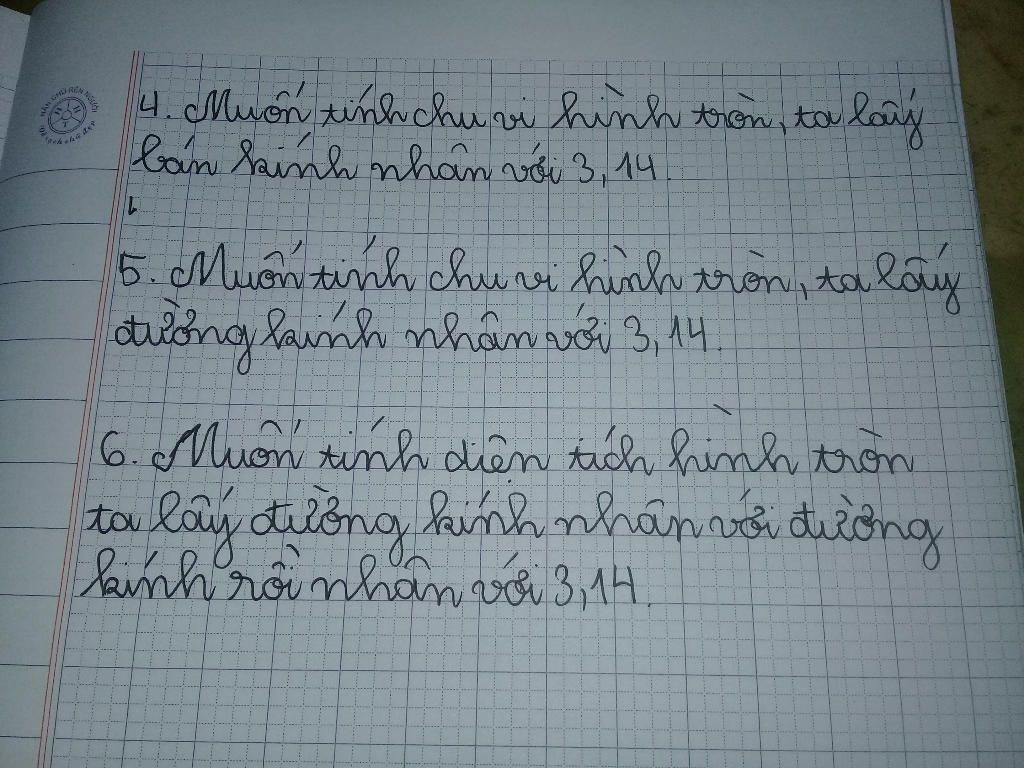 NÂN CHỮ RÈN NGƯỜI
Vở sạch chữ đẹp
4. Muốn tính chu vi hình tròn, ta lấy
bán kính nhân với 3,14.
5. Muốn tính chu vi hình tròn, ta lấy
đường kính nhân với 3,14.
6. Muốn tính diện tích hình tròn
ta lấy đường kính nhân với đường
kính rồi nhân với 3,14.